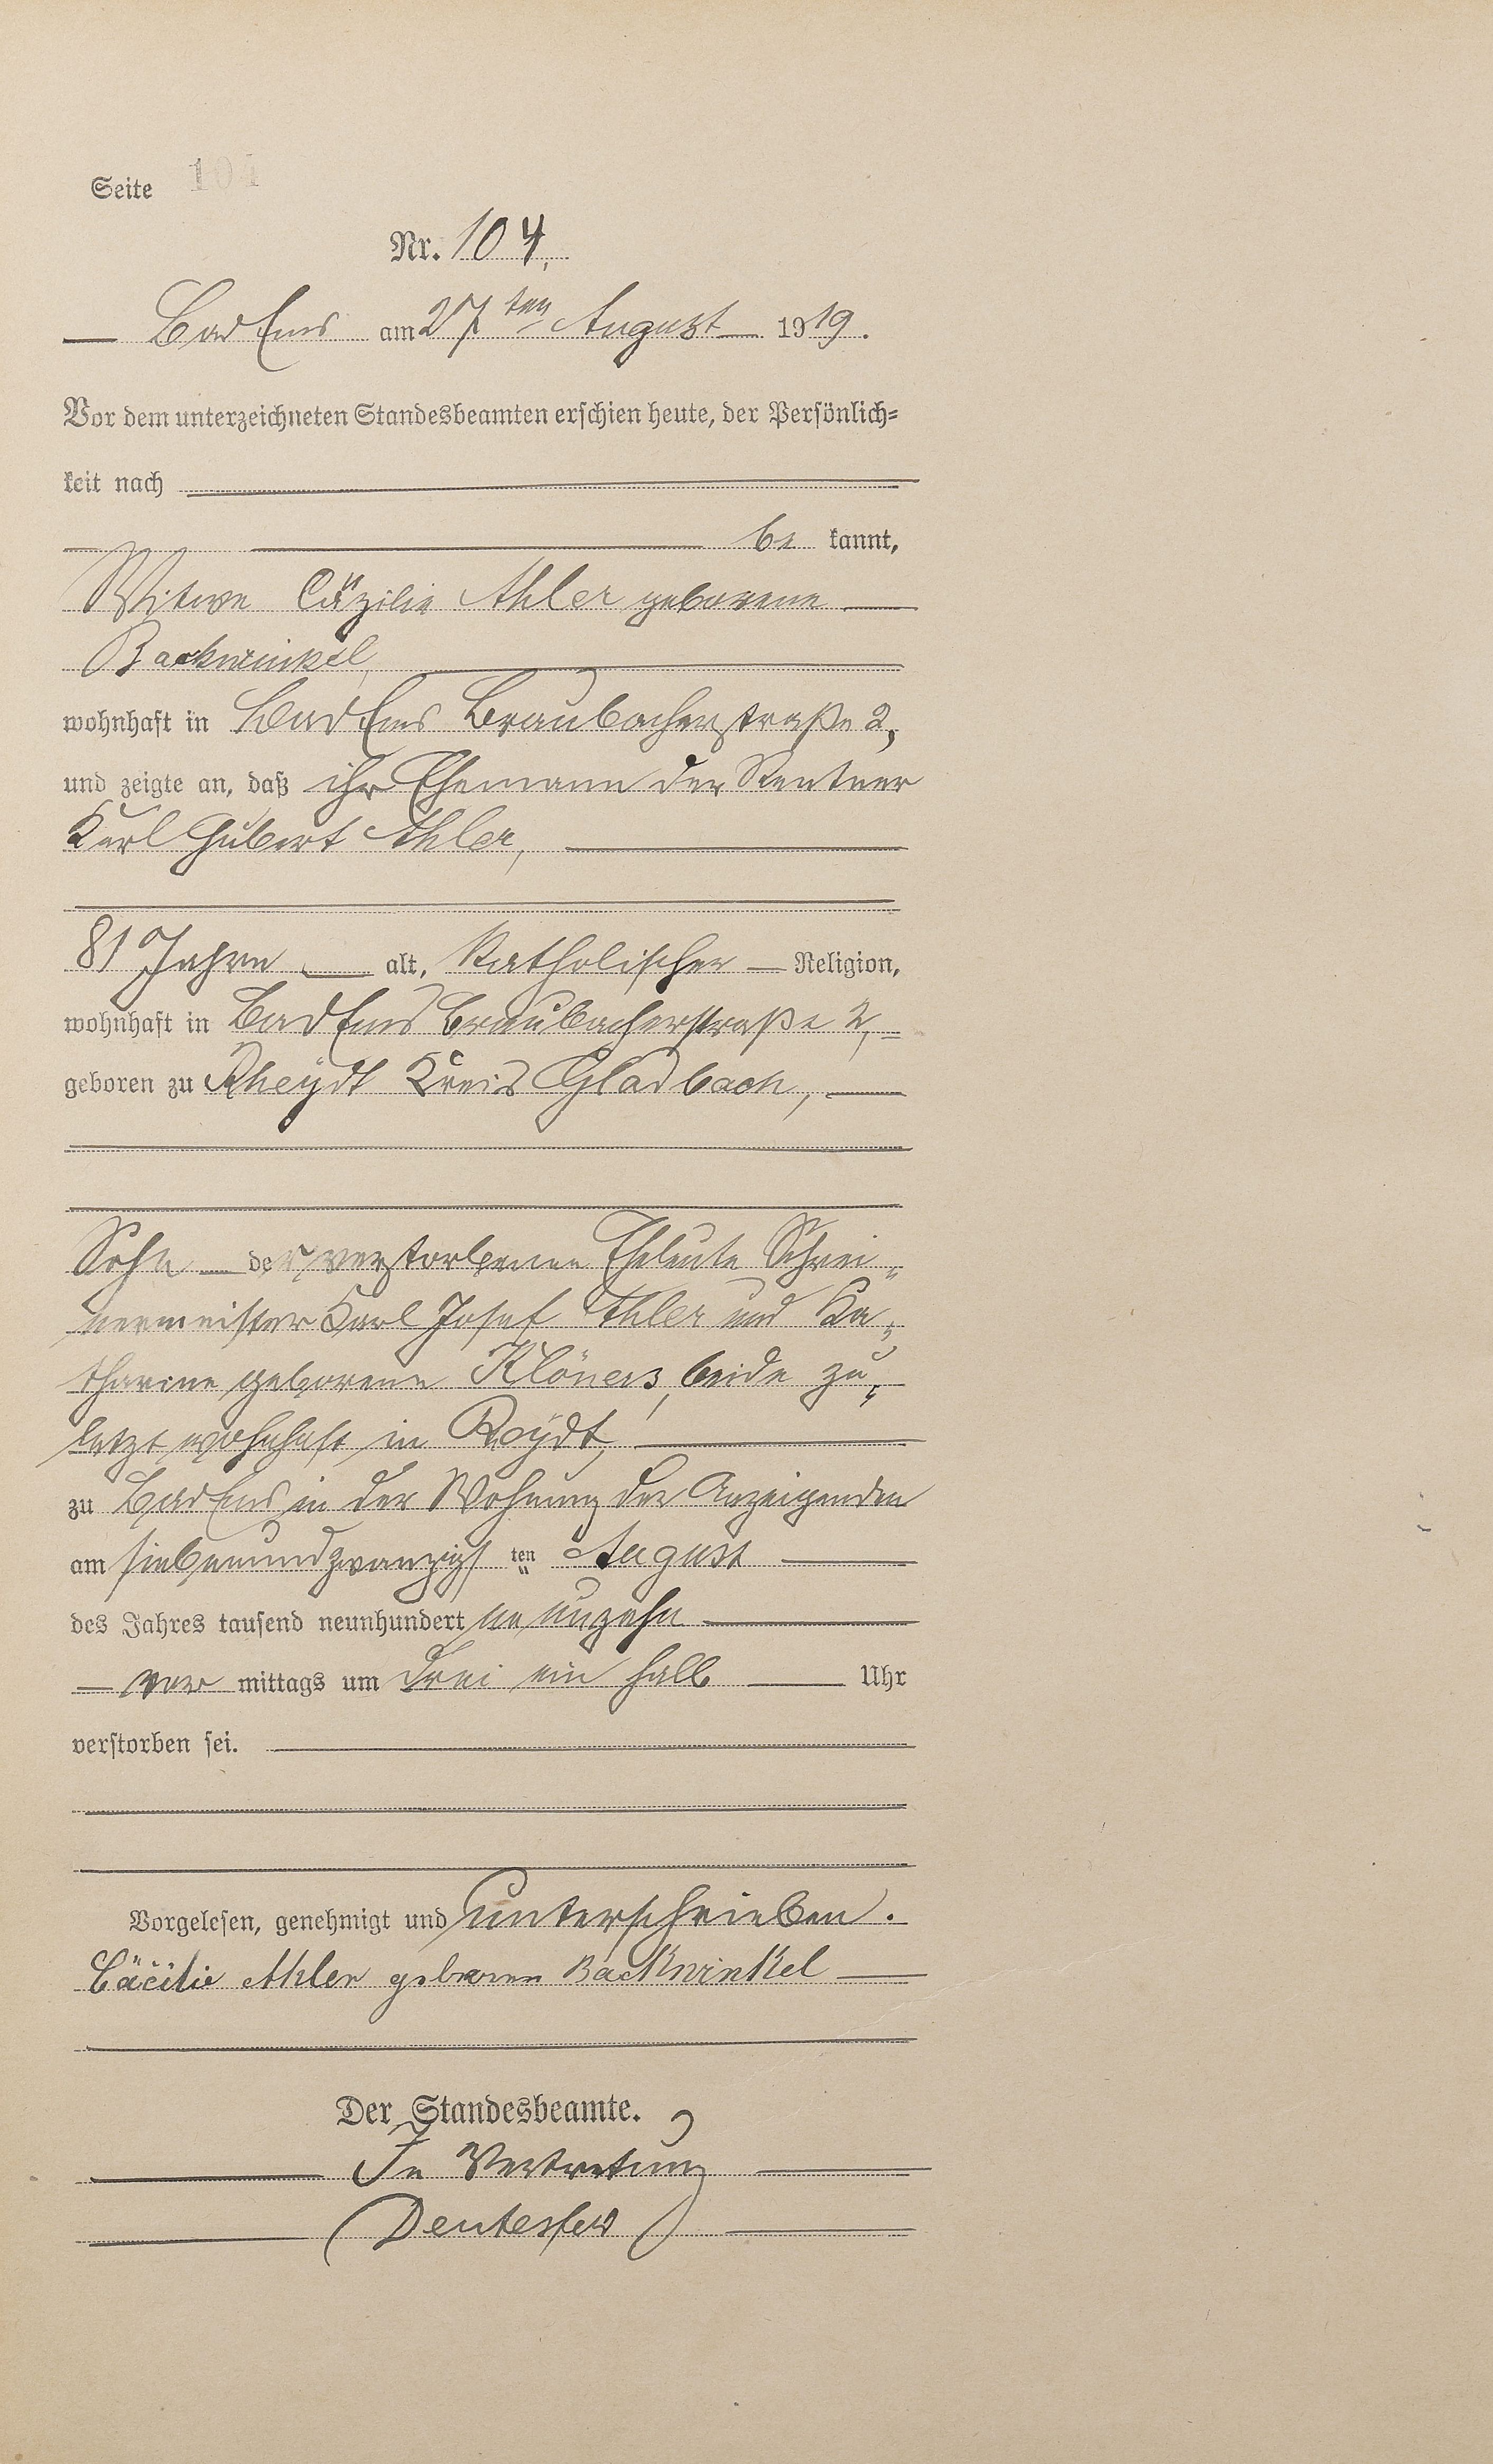 Seite 104
Nr. 104.
Bad Ems am 27ten August 1919.
Vor dem unterzeichneten Standesbeamten erschien heute, der Persönlich-
keit nach
be kannt,
Witwe Cäzilie Ahler geborene
Backwinkel,
wohnhaft in Bad Ems Braubacherstraße 2,
und zeigte an, daß ihr Ehemann der Rentner
Karl Hubert Ahler,
81 Jahre alt, katholischer Religion,
wohnhaft in Bad Ems Braubacherstraße 2,
geboren zu Rheydt Kreis Gladbach,
Sohn der verstorbenen Eheleute Schrei-
nermeister Karl Josef Ahler und Ka-
tharine geborene Klöners, beide zu-
letzt wohnhaft in Reydt,
zu Bad Ems in der Wohnung der Anzeigenden
am siebenundzwanzigsten August
des Jahres tausend neunhundert neunzehn
vor mittags um drei ein halb Uhr
verstorben sei.
Vorgelesen, genehmigt und unterschrieben.
Cäcilie Ahler geborene Backwinkel
Der Standesbeamte.
In Vertretung